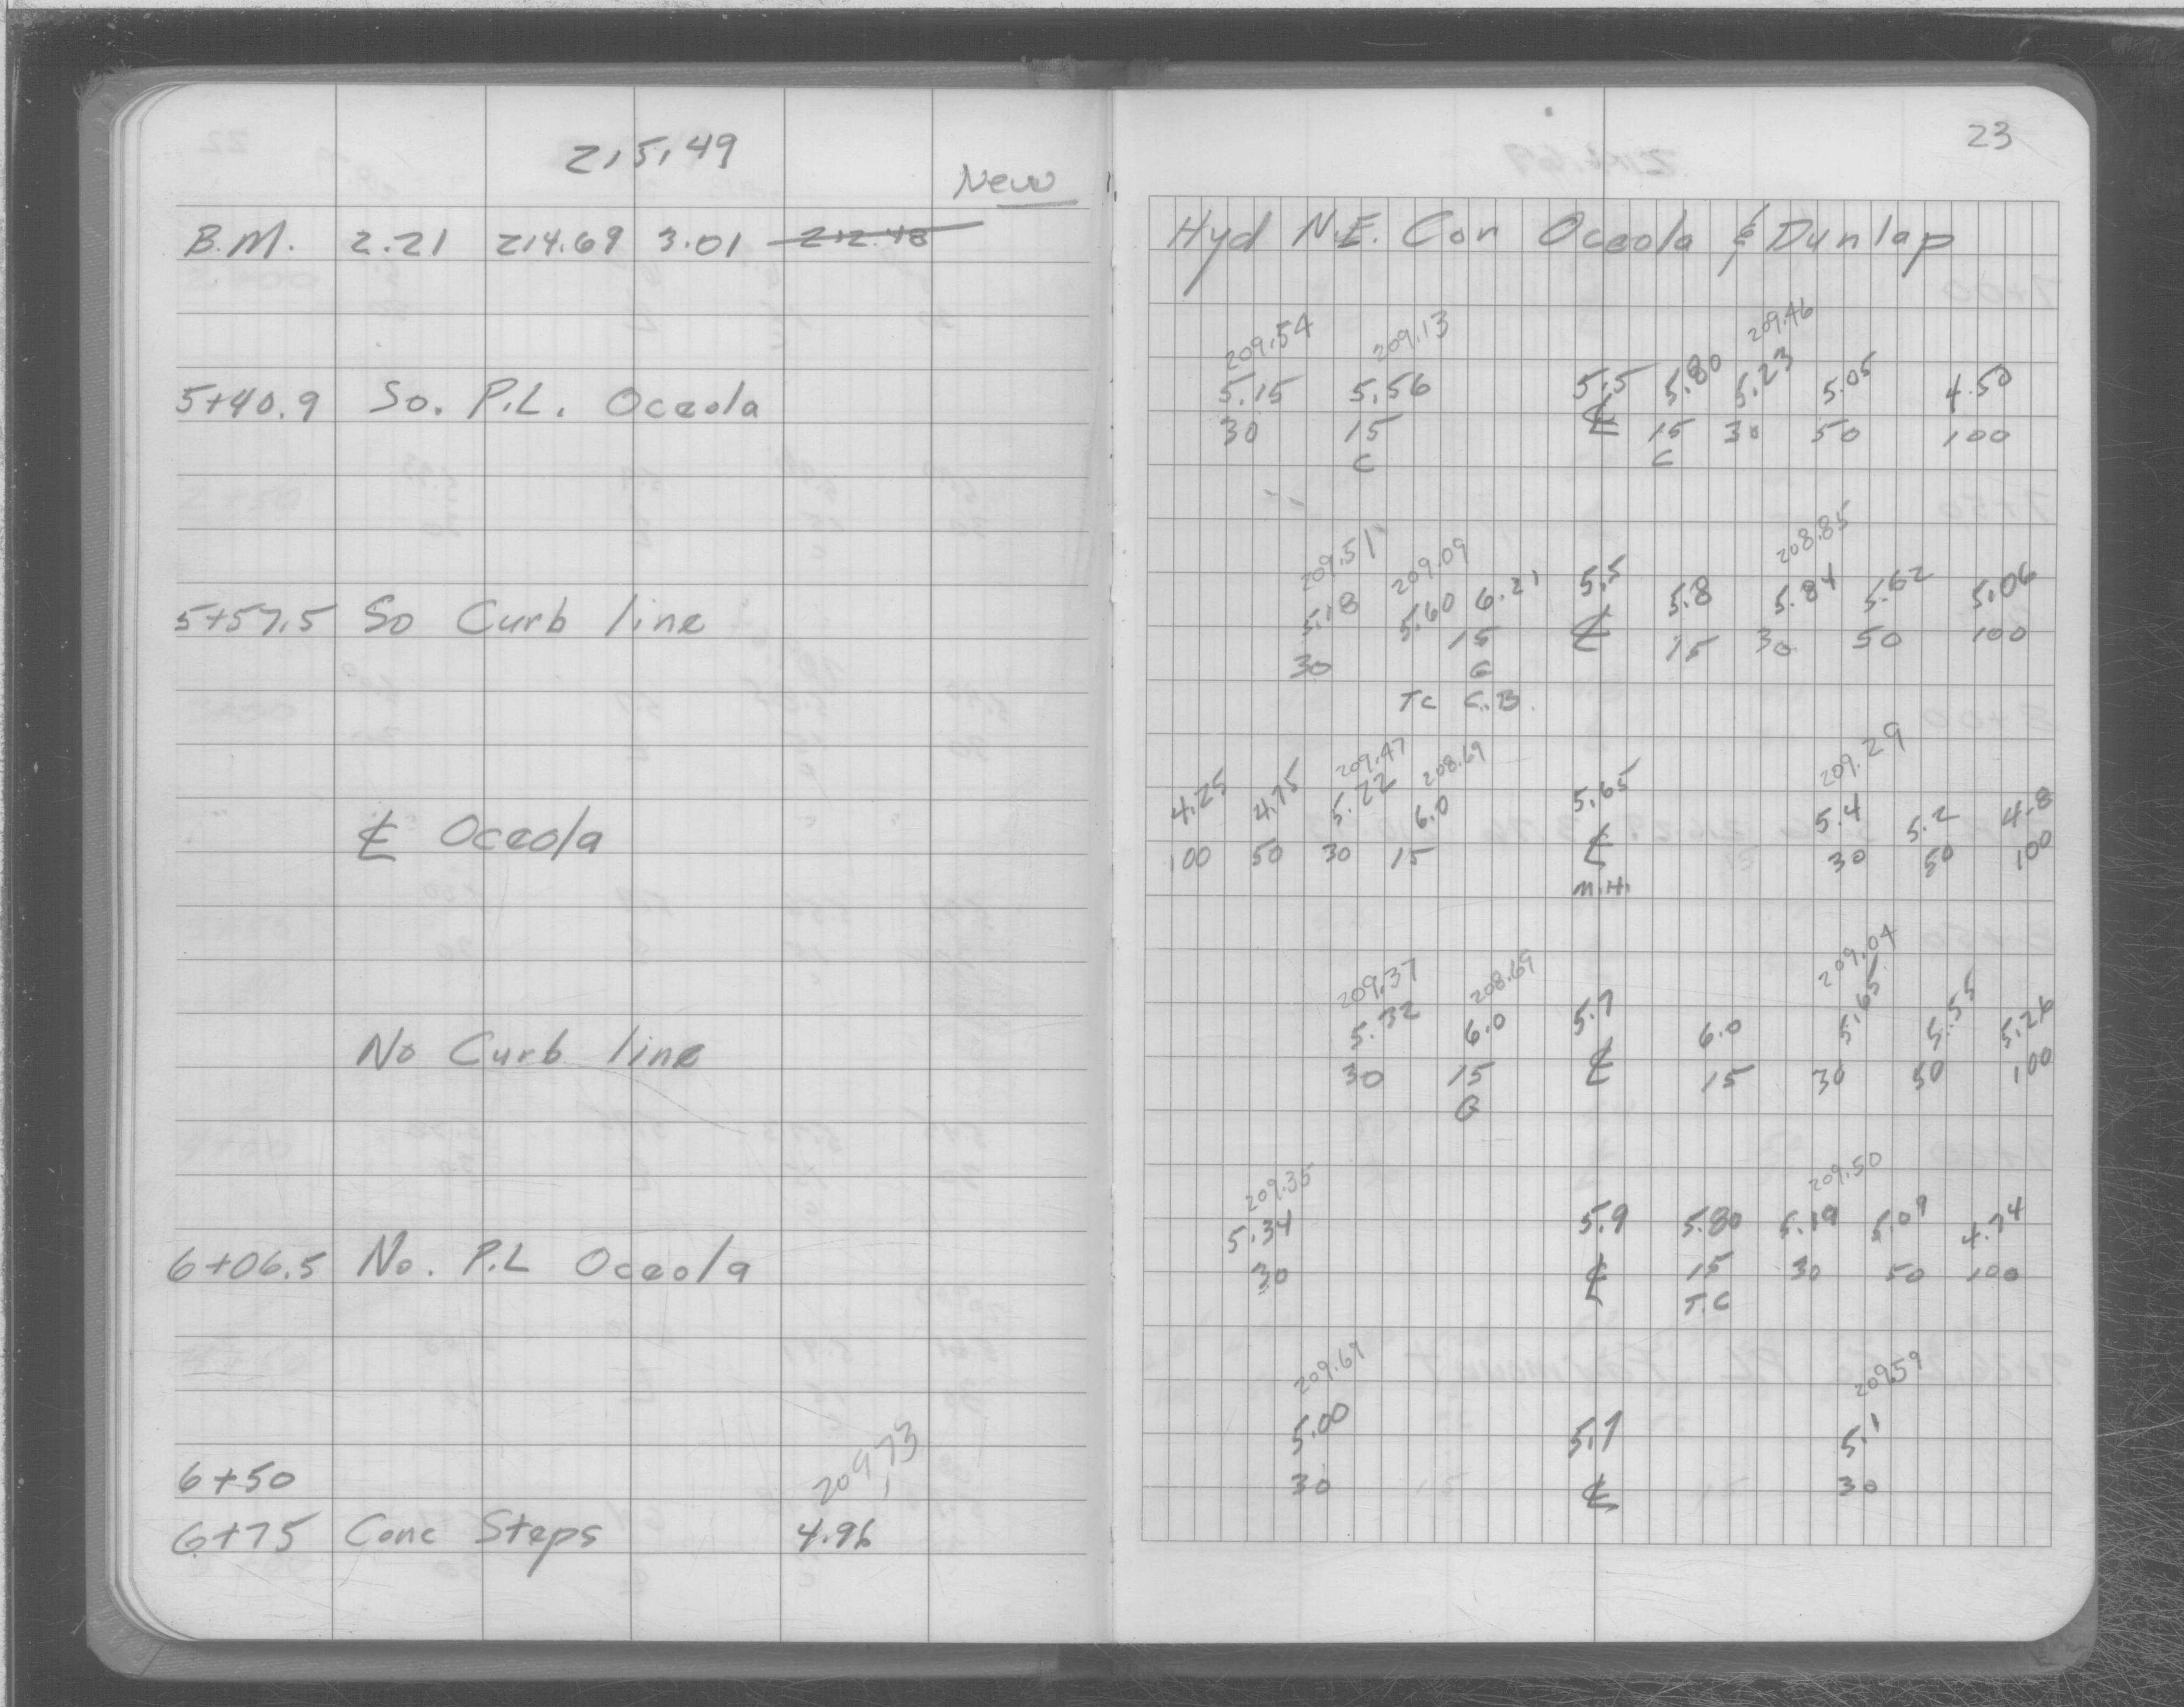 215.49
New
B.M. 2.21 214.69 3.01 212.48
5+40.9 So. P.L. Oceola
5+57.5 So Curb line
℄ Oceola
No Curb line
6+06.5 No. P.L Oceola
209.73
6+50
6+75 Conc Steps 4.96
23
Hyd N.E. Cor Oceola & Dunlap
209.54 209.13 209.46
5.15 5.56 5.5 5.80 5.23 5.05 4.50
30 15 ℄ 15 30 50 100
C C
209.51 209.09 208.85
5.18 5.60 6.21 5.5 5.8 5.84 5.62 5.06
30 15 ℄ 15 30 50 100
G
TC C.B.
209.47 208.69 209.29
4.25 4.75 5.22 6.0 5.65 5.4 5.2 4.8
100 50 30 15 ℄ 30 50 100
M.H.
209.37 208.69 209.04
5.32 6.0 5.7 6.0 5.65 5.55 5.26
30 15 ℄ 15 30 50 100
G
209.35 209.50
5.34 5.9 5.80 5.19 5.09 4.74
30 ℄ 15 30 50 100
T.C
209.69 209.59
5.00 5.7 5.1
30 ℄ 30